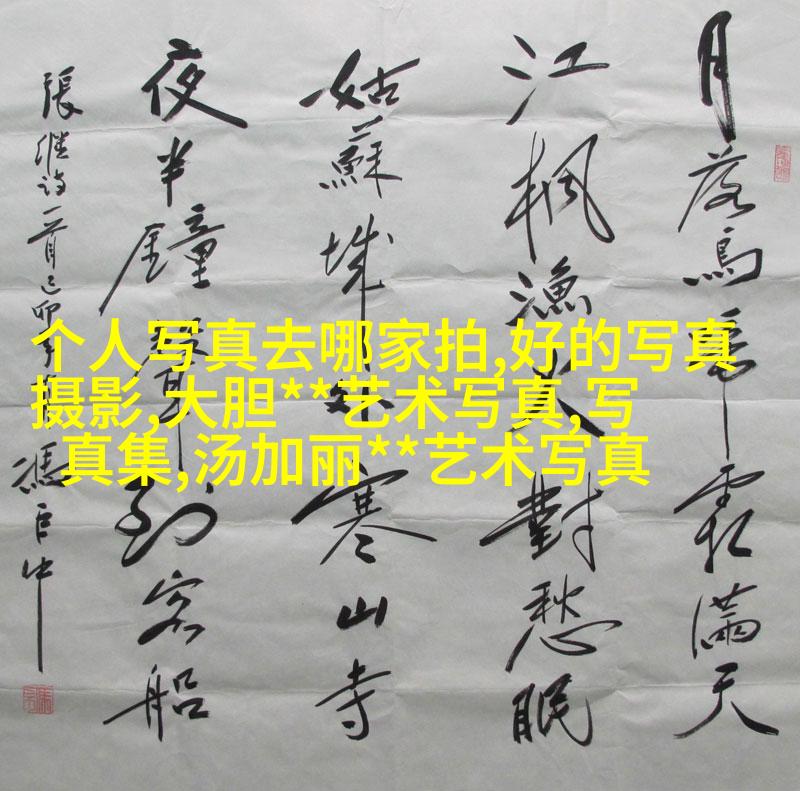 月落烏啼霜滿天
江楓漁火對愁眠
姑蘇城外寒山寺
夜半鐘聲到客船
張继诗一首己卯 馮 中
个人写真去哪家拍,好的写真
摄影,大胆**艺术写真,写
真集,汤加丽**艺术写真